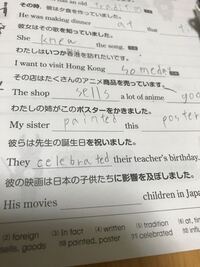 その時、彼は夕食を作っていました。
He was making dinner at that
彼女はその歌を知っていました。
She knew the song.
わたしはいつか香港を訪れたいです。
I want to visit Hong Kong someday
その店はたくさんのアニメ商品を売っています。
The shop sells a lot of anime goo
わたしの姉がこのポスターをかきました。
My sister painted this poster
彼らは先生の誕生日を祝いました。
They celebrated their teacher's birthday.
彼の映画は日本の子供たちに影響を及ぼしました。
His movies children in Japa
(2) foreign (3) In fact (4) written (5) tradition (6) at, tim
sells, goods (10) painted, poster (11) celebrated (12) influ